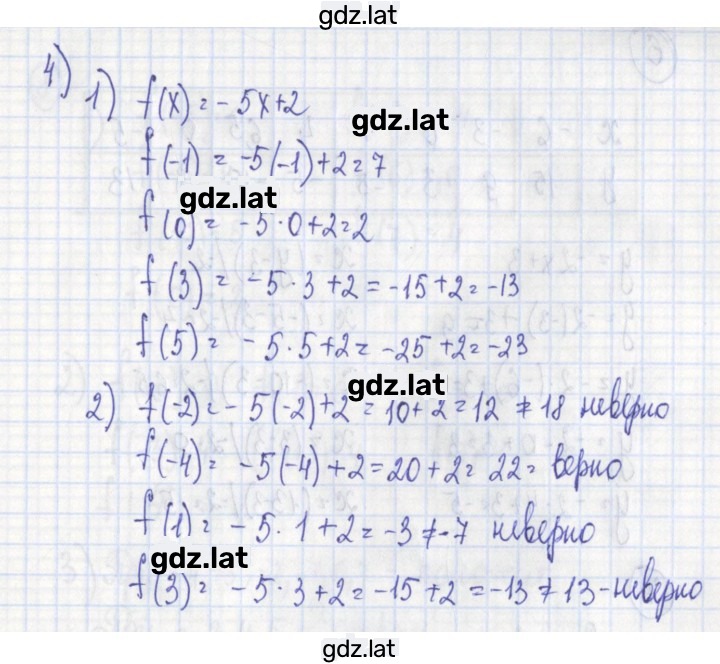 gdz.lat
4)
1) f(x) = -5x+2
gdz.lat
f(-1) = -5(-1)+2=7
gdz.lat
f(0)= -5·0+2=2
f(3)= -5·3+2=-15+2=-13
f(5)= -5·5+2=-25+2=-23
gdz.lat
2) f(-2)=-5(-2)+2=10+2=12≠18 неверно
f(-4)= -5(-4)+2=20+2=22= верно
f(1)= -5·1+2=-3≠-7 неверно
gdz.lat
f(3)= -5·3+2=-15+2=-13≠13-неверно
gdz.lat